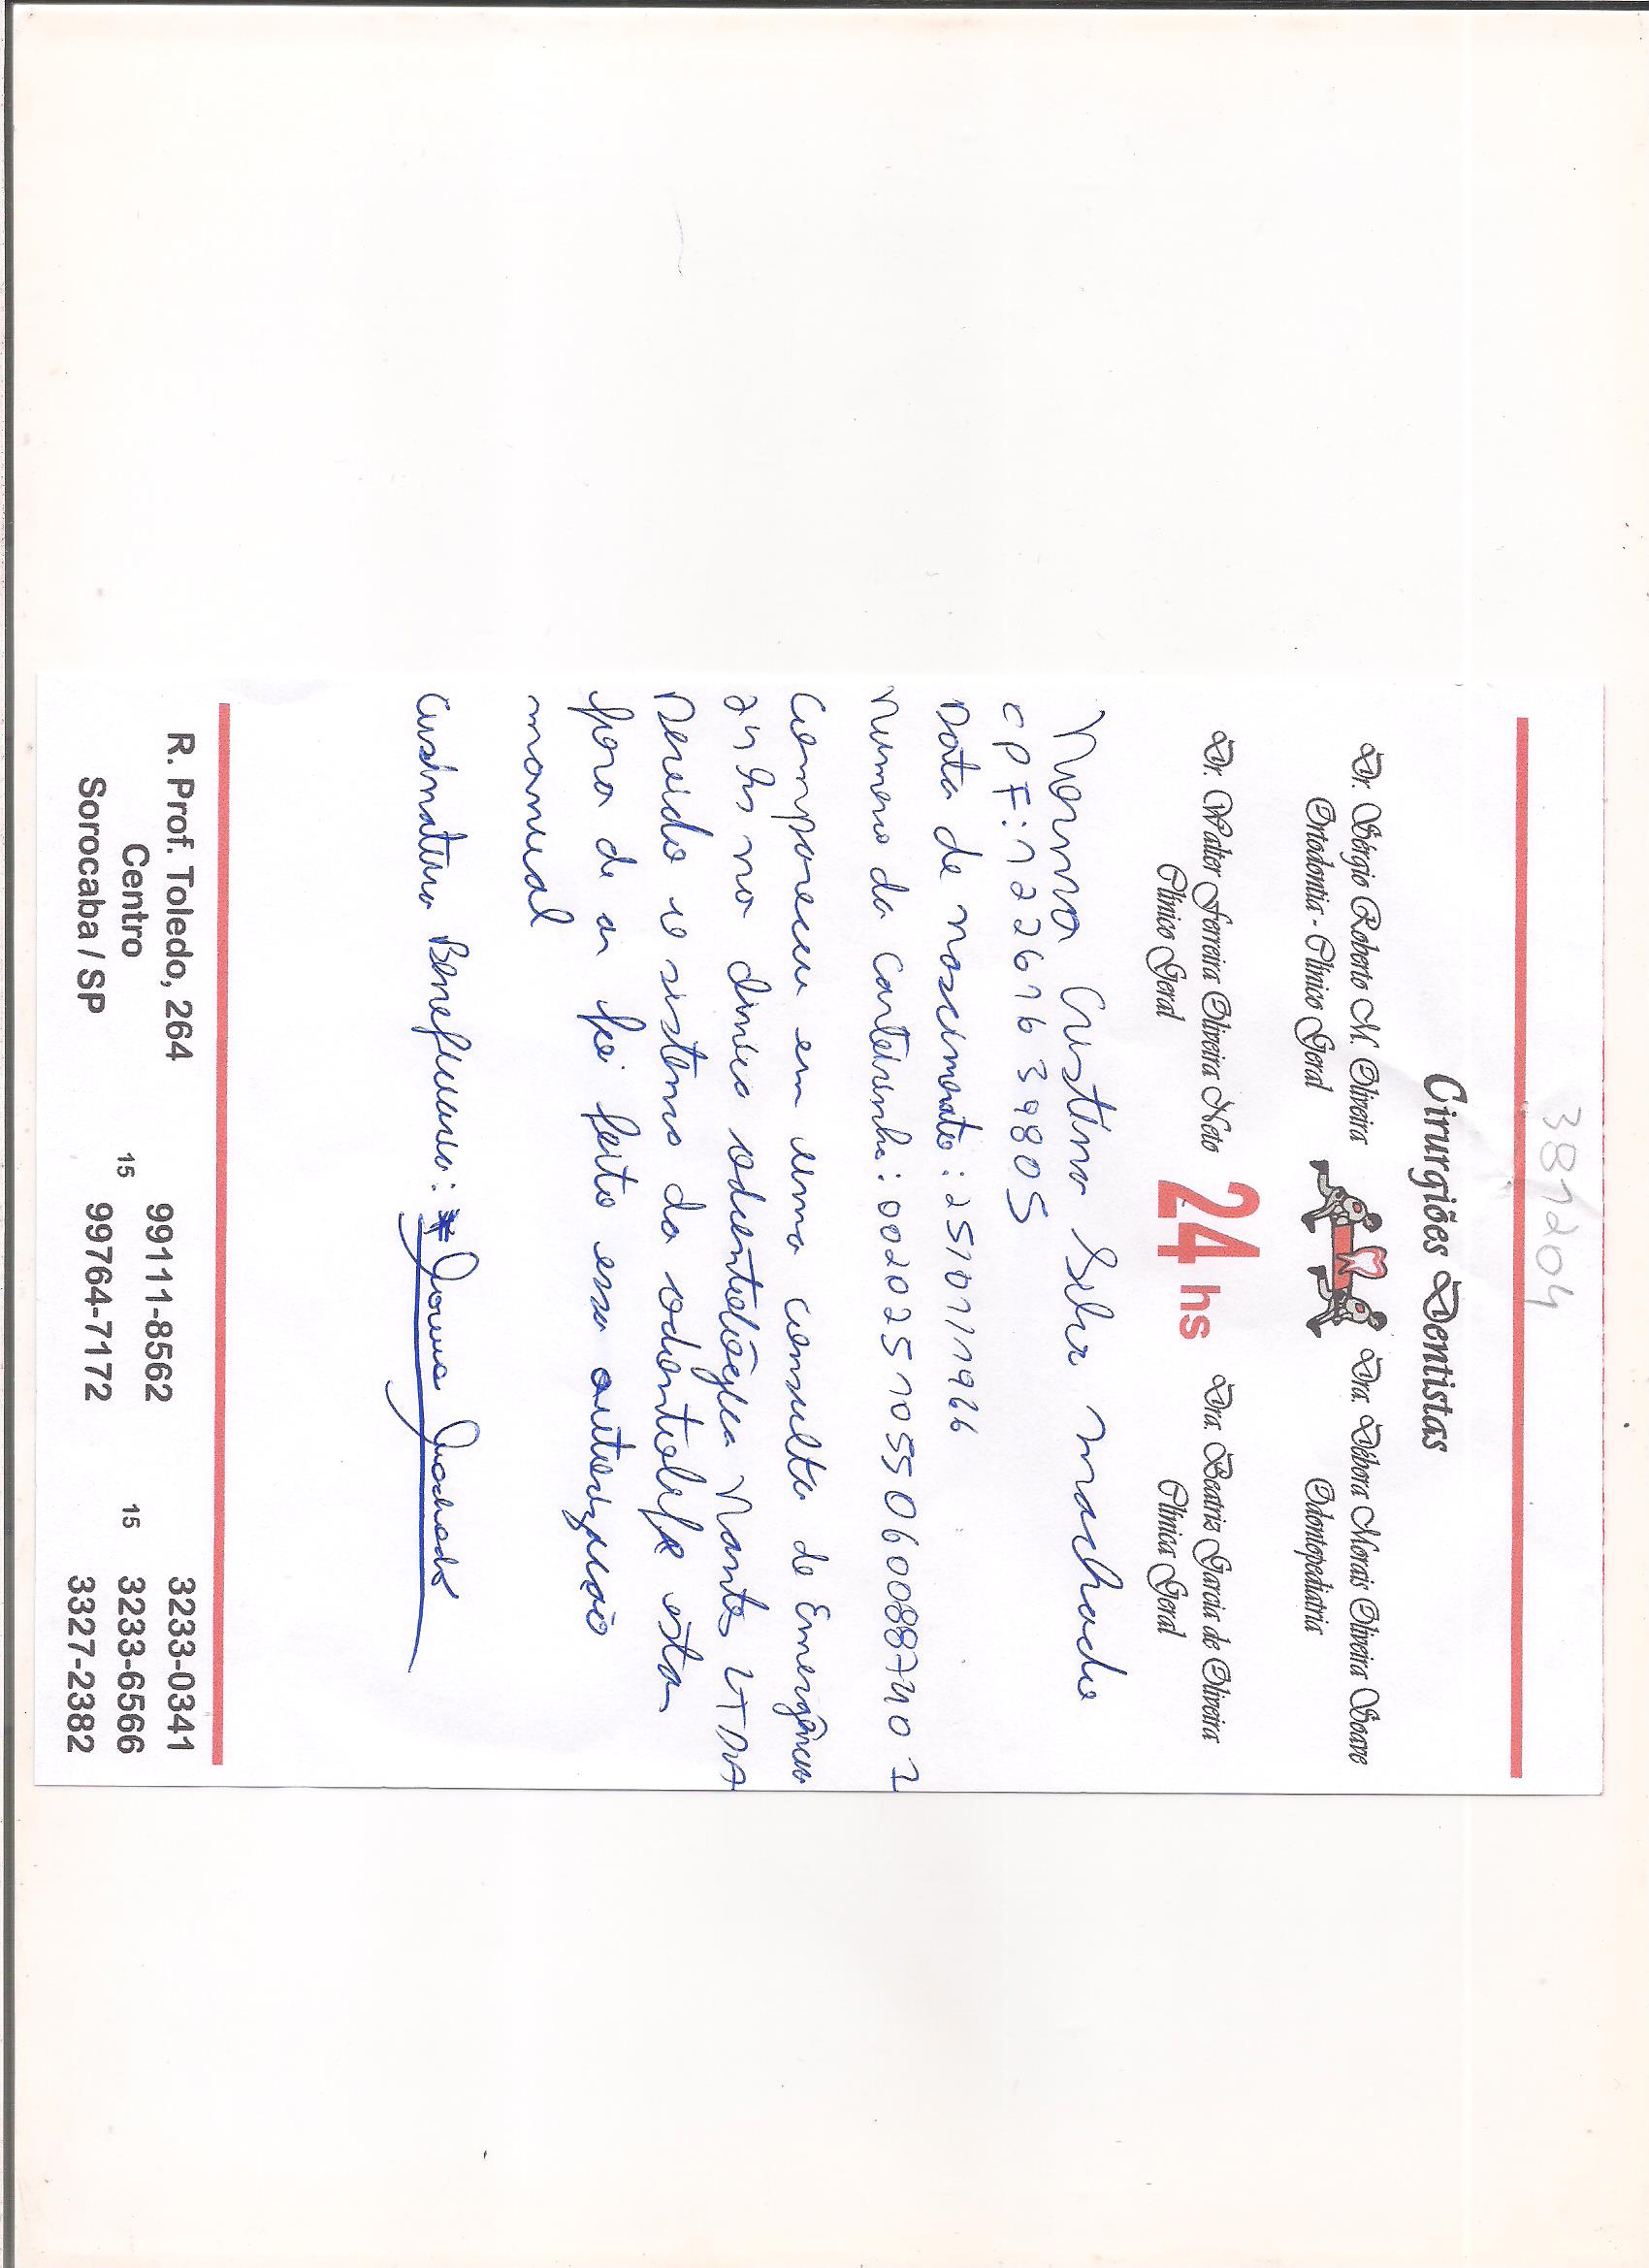 389204
Cirurgiões Dentistas
Dr. Sérgio Roberto M. Oliveira
Ortodontia - Clínico Geral
Dra. Débora Morais Oliveira Soave
Odontopediatria
Dr. Walter Ferreira Oliveira Neto
Clínico Geral
24 hs
Dra. Beatriz Garcia de Oliveira
Clínica Geral
Norma Cristina Silva machado
CPF: 12261639805
Data de nascimento: 25/07/1966
Numero da Carteirinha: 00202510550600887401
Compareceu em uma consulta de Emergência
24 hs na clinica odontológica Nantes LTDA
Devido o sistema da odontolife esta
fora de ar foi feito essa autorização
manual
assinatura Beneficiario:
R. Prof. Toledo, 264
Centro
Sorocaba / SP
15 99111-8562
99764-7172
15 3233-0341
3233-6566
3327-2382